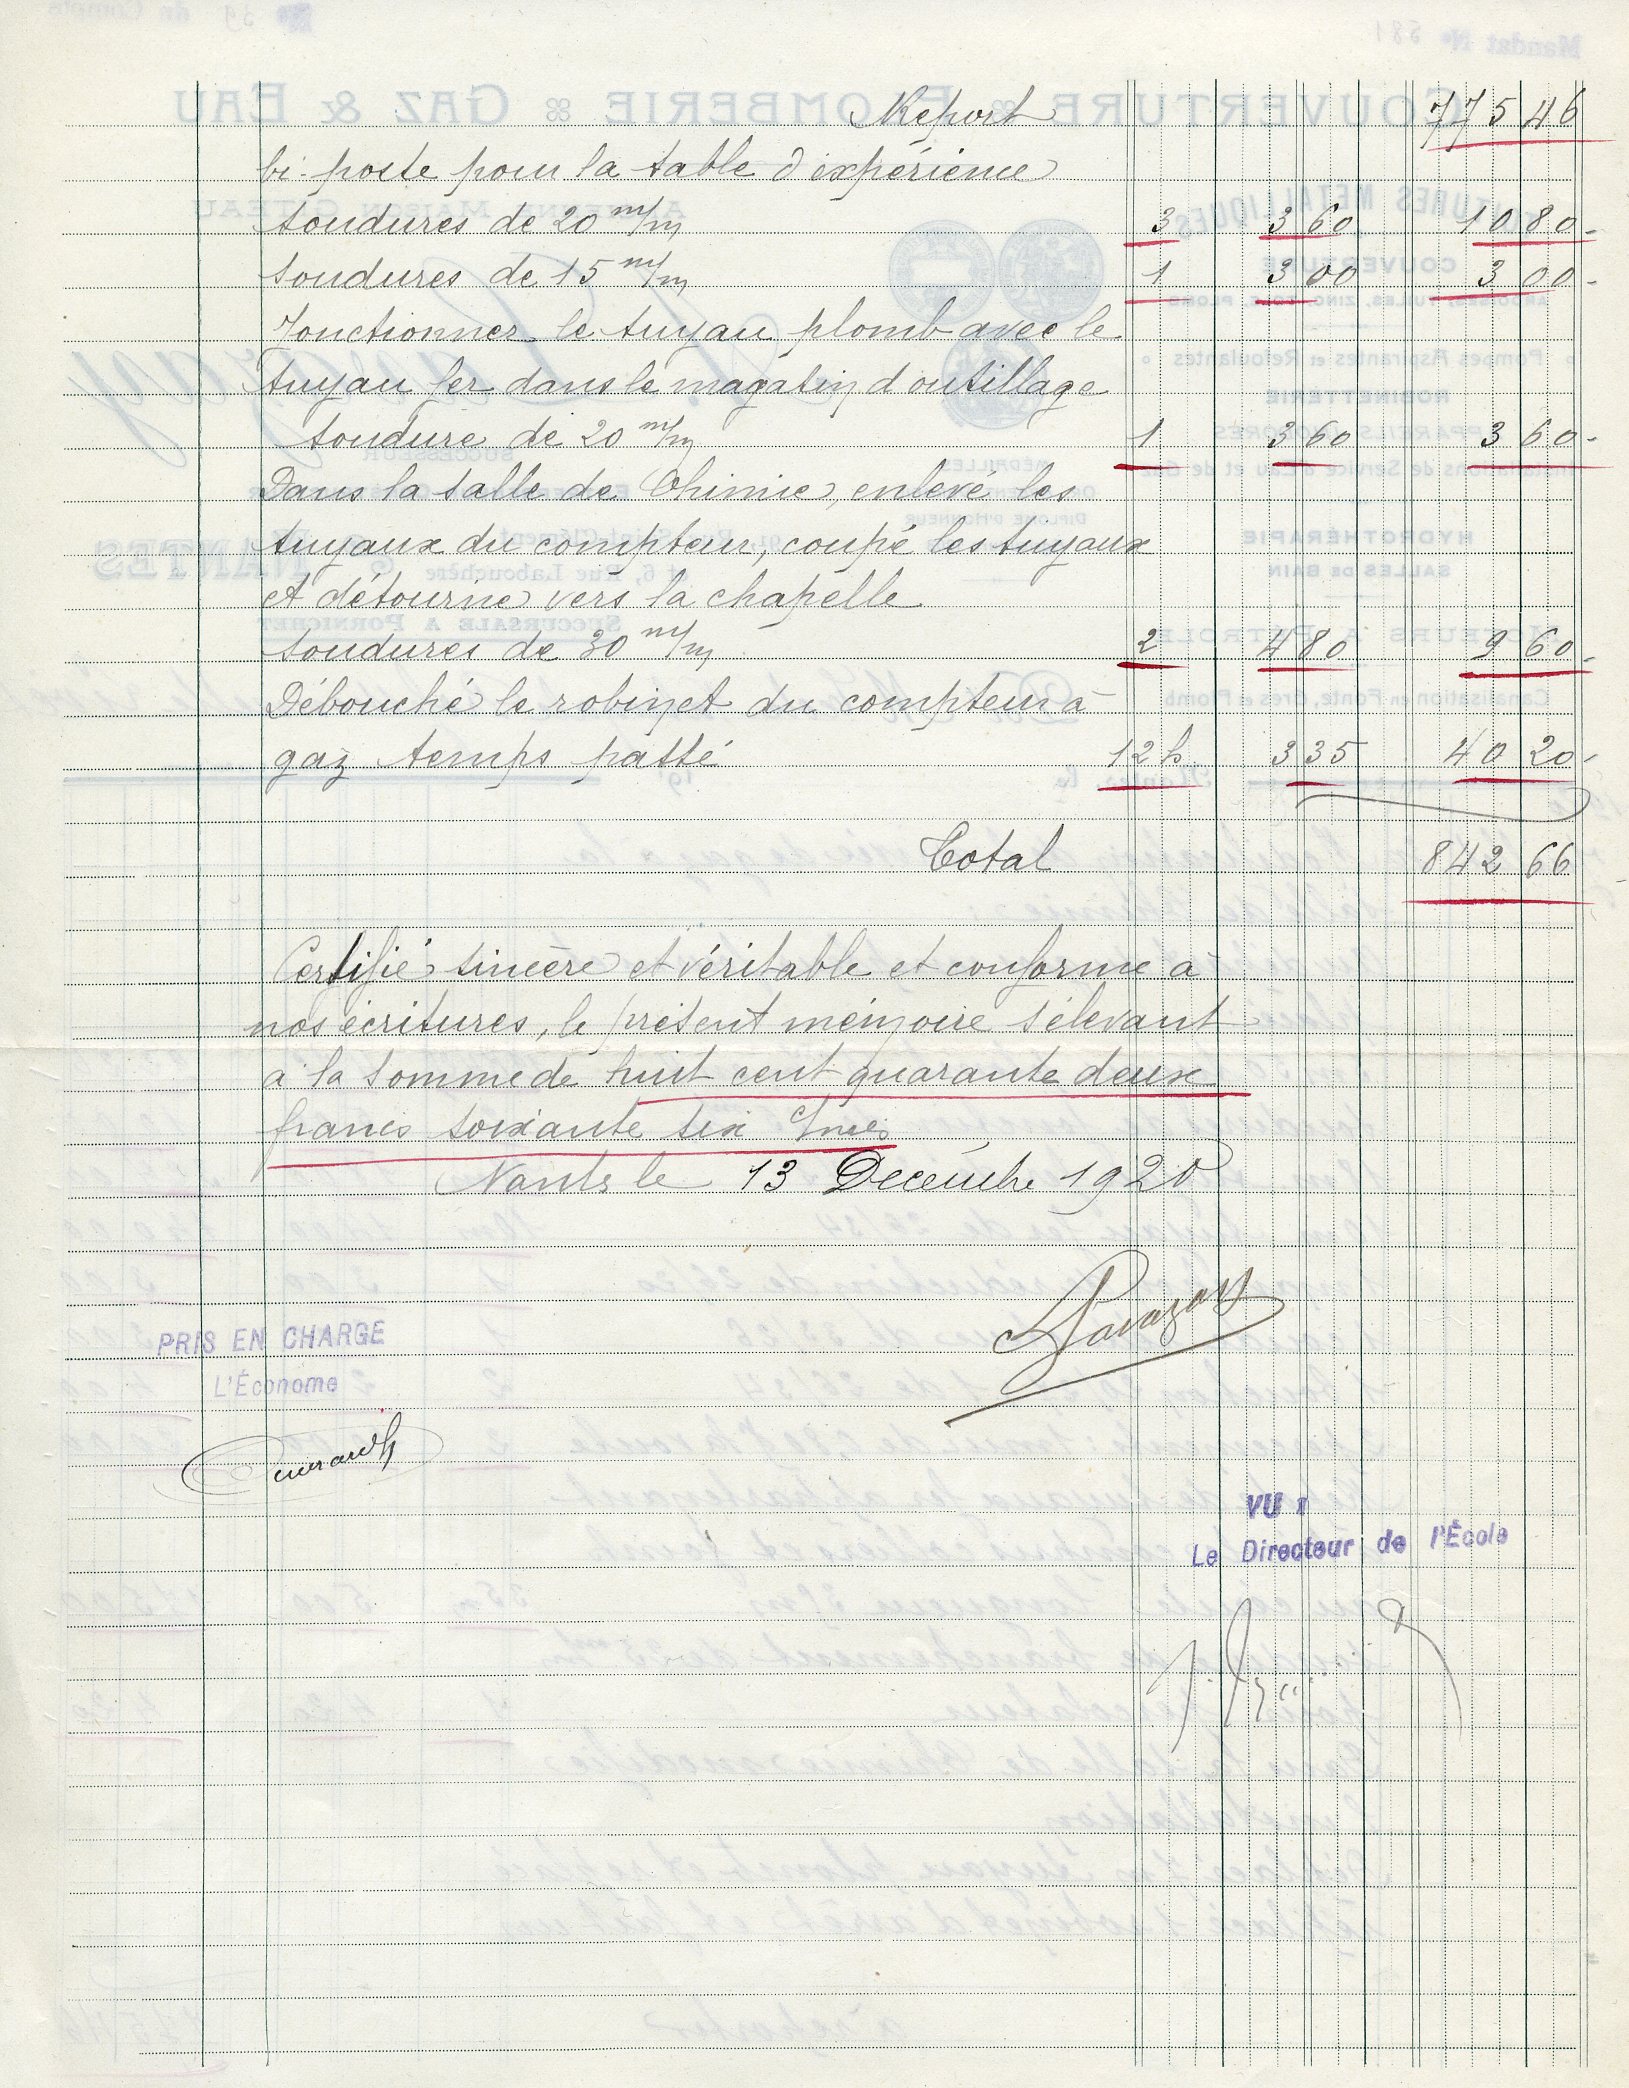 Report 775 46
bi-poste pour la table d'expérience
soudures de 20 m/m 3 3 60 10 80
soudures de 15 m/m 1 3 00 3 00
Jonctionner le tuyau plomb avec le
tuyau fer dans le magasin d'outillage
soudure de 20 m/m 1 3 60 3 60
Dans la salle de Chimie, enlevé les
tuyaux du compteur, coupé les tuyaux
et détourné vers la chapelle
soudures de 30 m/m 2 4 80 9 60
Débouché le robinet du compteur à
gaz temps passé 12 h 3 35 40 20
Total 842 66
Certifié sincère et véritable et conforme à
nos écritures, le présent mémoire s'élevant
à la somme de huit cent quarante deux
francs soixante six
Nantes le 13 Décembre 1920
Lavazay
PRIS EN CHARGE
L'Économe
VU :
Le Directeur de l'École